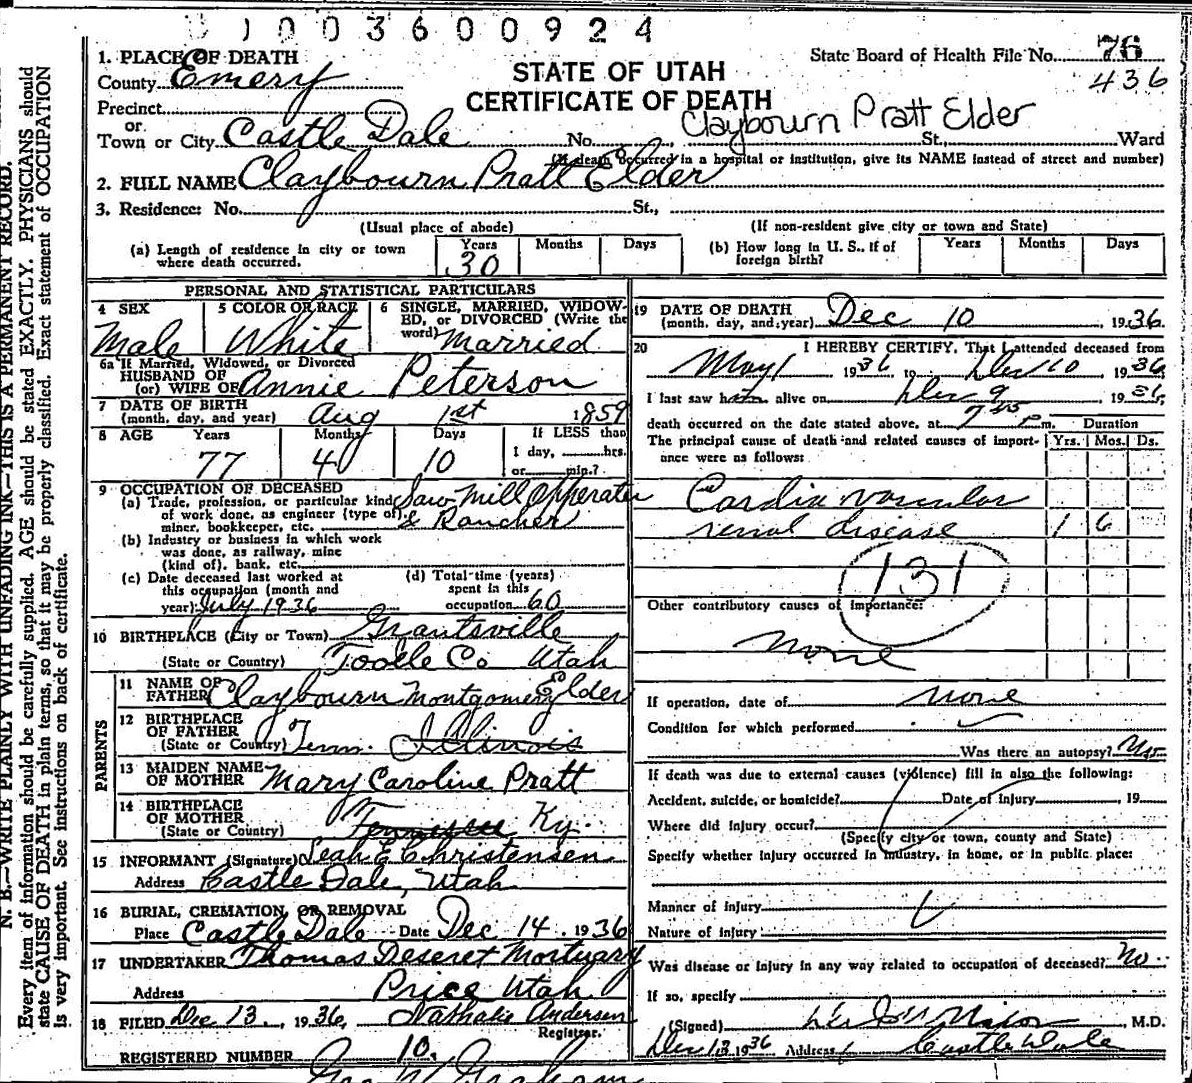 0 1 0 0 3 6 0 0 9 2 4
1. PLACE OF DEATH
County Emery
STATE OF UTAH
CERTIFICATE OF DEATH
State Board of Health File No. 76
436
Precinct
or
Town or City Castle Dale No. St., Ward
Claybourn Pratt Elder
(If death occurred in a hospital or institution, give its NAME instead of street and number)
2. FULL NAME Claybourn Pratt Elder
3. Residence: No. St.,
(Usual place of abode) (If non-resident give city or town and State)
(a) Length of residence in city or town where death occurred. Years 30 Months Days
(b) How long in U. S., if of foreign birth? Years Months Days
PERSONAL AND STATISTICAL PARTICULARS
4 SEX Male
5 COLOR OR RACE White
6 SINGLE, MARRIED, WIDOWED, or DIVORCED (Write the word) Married
6a If Married, Widowed, or Divorced
HUSBAND OF
(or) WIFE OF Annie Peterson
7 DATE OF BIRTH
(month, day, and year) Aug 1st 1859
8 AGE Years 77 Months 4 Days 10 If LESS than
1 day, hrs.
or min.?
9 OCCUPATION OF DECEASED
(a) Trade, profession, or particular kind of work done, as engineer (type of), miner, bookkeeper, etc. Saw Mill Opperater & Rancher
(b) Industry or business in which work was done, as railway, mine (kind of), bank, etc.
(c) Date deceased last worked at this occupation (month and year) July 1936
(d) Total time (years) spent in this occupation 60
10 BIRTHPLACE (City or Town) Grantsville
(State or Country) Tooele Co Utah
PARENTS
11 NAME OF FATHER Claybourn Montgomery Elder
12 BIRTHPLACE OF FATHER
(State or Country) Tenn. Illinois
13 MAIDEN NAME OF MOTHER Mary Caroline Pratt
14 BIRTHPLACE OF MOTHER
(State or Country) Tennessee Ky.
15 INFORMANT (Signature) Leah E Christensen
Address Castle Dale, Utah
16 BURIAL, CREMATION, OR REMOVAL
Place Castle Dale Date Dec 14, 1936
17 UNDERTAKER Thomas Deseret Mortuary
Address Price Utah
18 FILED Dec 13, 1936, Nathalie Andersen
Registrar.
REGISTERED NUMBER 10.
19 DATE OF DEATH
(month, day, and year) Dec 10, 1936
20 I HEREBY CERTIFY, That I attended deceased from
May 1 1936 to Dec 10 1936
I last saw him alive on Dec 9 1936
death occurred on the date stated above, at 7 45 P m. Duration
The principal cause of death and related causes of importance were as follows: Yrs. Mos. Ds.
Cardio vascular
renal disease 1 6
131
Other contributory causes of importance:
None
If operation, date of none
Condition for which performed
Was there an autopsy? No
If death was due to external causes (violence) fill in also the following:
Accident, suicide, or homicide? Date of injury , 19
Where did injury occur?
(Specify city or town, county and State)
Specify whether injury occurred in industry, in home, or in public place:
Manner of injury
Nature of injury
Was disease or injury in any way related to occupation of deceased? No
If so, specify
(Signed) Nixon, M.D.
Dec 13 1936 Address Castle Dale
N. B.—WRITE PLAINLY WITH UNFADING INK—THIS IS A PERMANENT RECORD.
Every item of information should be carefully supplied. AGE should be stated EXACTLY. PHYSICIANS should
state CAUSE OF DEATH in plain terms, so that it may be properly classified. Exact statement of OCCUPATION
is very important. See instructions on back of certificate.